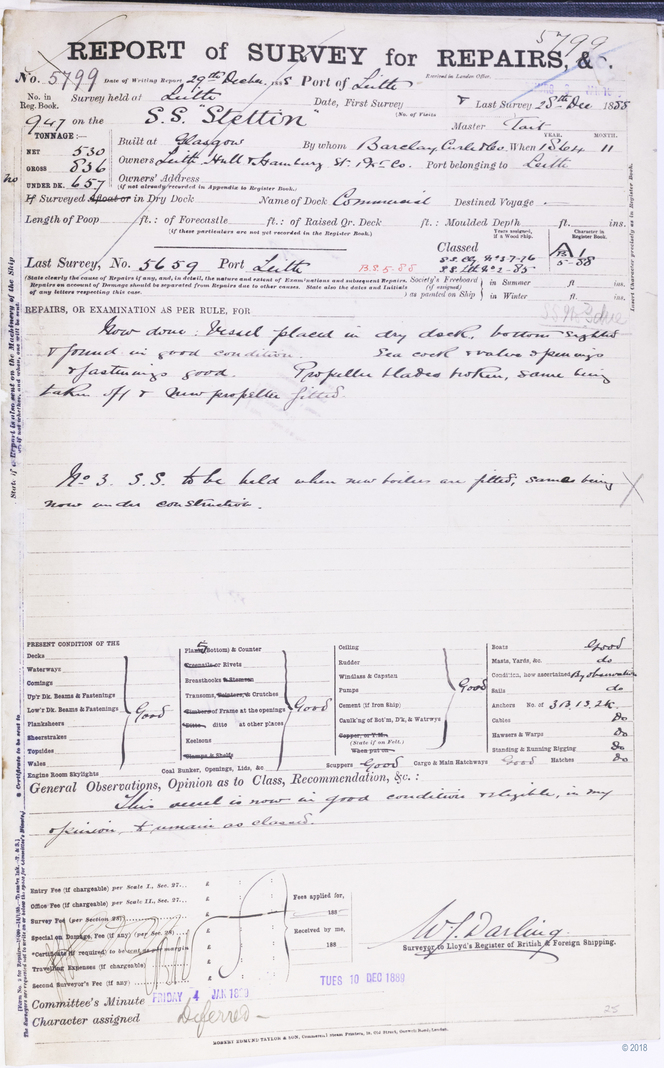 5799
REPORT of SURVEY for REPAIRS, &c.
No. 5799 Date of Writing Report 29th Decber 188 Port of Leith Received in London Office
No. in Reg. Book. Survey held at Leith Date, First Survey & Last Survey 28th Dec 1885
(No. of Visits
947 on the S.S. "Stettin" Master Tait
TONNAGE:— YEAR. MONTH.
NET 530 Built at Glasgow By whom Barclay, Curle & Co. When 1864 11
GROSS 836 Owners Leith, Hull & Hamburg St. Pkt Co. Port belonging to Leith
UNDER DK. 657 Owners' Address
(if not already recorded in Appendix to Register Book.)
If Surveyed Afloat or in Dry Dock Name of Dock Commercial Destined Voyage
Length of Poop ft.: of Forecastle ft.: of Raised Qr. Deck ft.: Moulded Depth ft. ins.
(if these particulars are not yet recorded in the Register Book.)
Years assigned, if a Wood Ship. Character in Register Book.
Classed
Last Survey, No. 5659 Port Leith B.S. 5.88
A 1
5-88
(State clearly the cause of Repairs if any, and, in detail, the nature and extent of Examinations and subsequent Repairs.
Repairs on account of Damage should be separated from Repairs due to other causes. State also the dates and Initials
of any letters respecting this case.
Society's Freeboard (if assigned) as painted on Ship in Summer ft. ins.
in Winter ft. ins.
REPAIRS, OR EXAMINATION AS PER RULE, FOR
Now done: Vessel placed in dry dock, bottom sighted
& found in good condition. Sea cock & valve openings
& fastenings good. Propeller blades broken, same being
taken off & new propeller fitted.
No 3. S.S. to be held when new boilers are fitted, same being
now under construction.
PRESENT CONDITION OF THE
Decks
Waterways
Comings
Up'r Dk. Beams & Fastenings
Low'r Dk. Beams & Fastenings
Planksheers
Sheerstrakes
Topsides
Wales
Engine Room Skylights
Good
(Bottom) & Counter
Treenails or Rivets
Breasthooks & Stemson
Transoms, Pointers, & Crutches
Timbers of Frame at the openings
Ditto ditto at other places
Keelsons
Clamps & Shelfs
Coal Bunker, Openings, Lids, &c
Good
Ceiling
Rudder
Windlass & Capstan
Pumps
Cement (if from Ship)
Caulk'ng of Bot'm, D'k, & Watrwys
Copper, or Y.M.
(State if on Felt.)
When put on
Scuppers Good
Good
Boats Good
Masts, Yards, &c. do
Condition, how ascertained By observation
Sails do
Anchors No. of 3B. 1S. 2K.
Cables Do
Hawsers & Warps Do
Standing & Running Rigging Do
Cargo & Main Hatchways Good Hatches Do
General Observations, Opinion as to Class, Recommendation, &c.:
This vessel is now in good condition & eligible, in my
opinion, to remain as classed.
Entry Fee (if chargeable) per Scale I., Sec. 27... £ : :
Office Fee (if chargeable) per Scale II., Sec. 27... £ : :
Survey Fee (per Section 28) £ : :
Special on Damage, Fee (if any) (per Sec. 28) £ : :
*Certificate (if required) to be sent as per margin
Travelling Expenses (if chargeable) £ : :
Second Surveyor's Fee (if any) £ : :
Fees applied for,
188
Received by me,
188
W. J. Darling
Surveyor to Lloyd's Register of British & Foreign Shipping.
TUES 10 DEC 1889
Committee's Minute FRIDAY 4 JAN 18
Character assigned Deferred
25
ROBERT EDMUND TAYLOR & SON, Commercial Steam Printers, 19, Old Street, Goswell Road, London.
© 2018